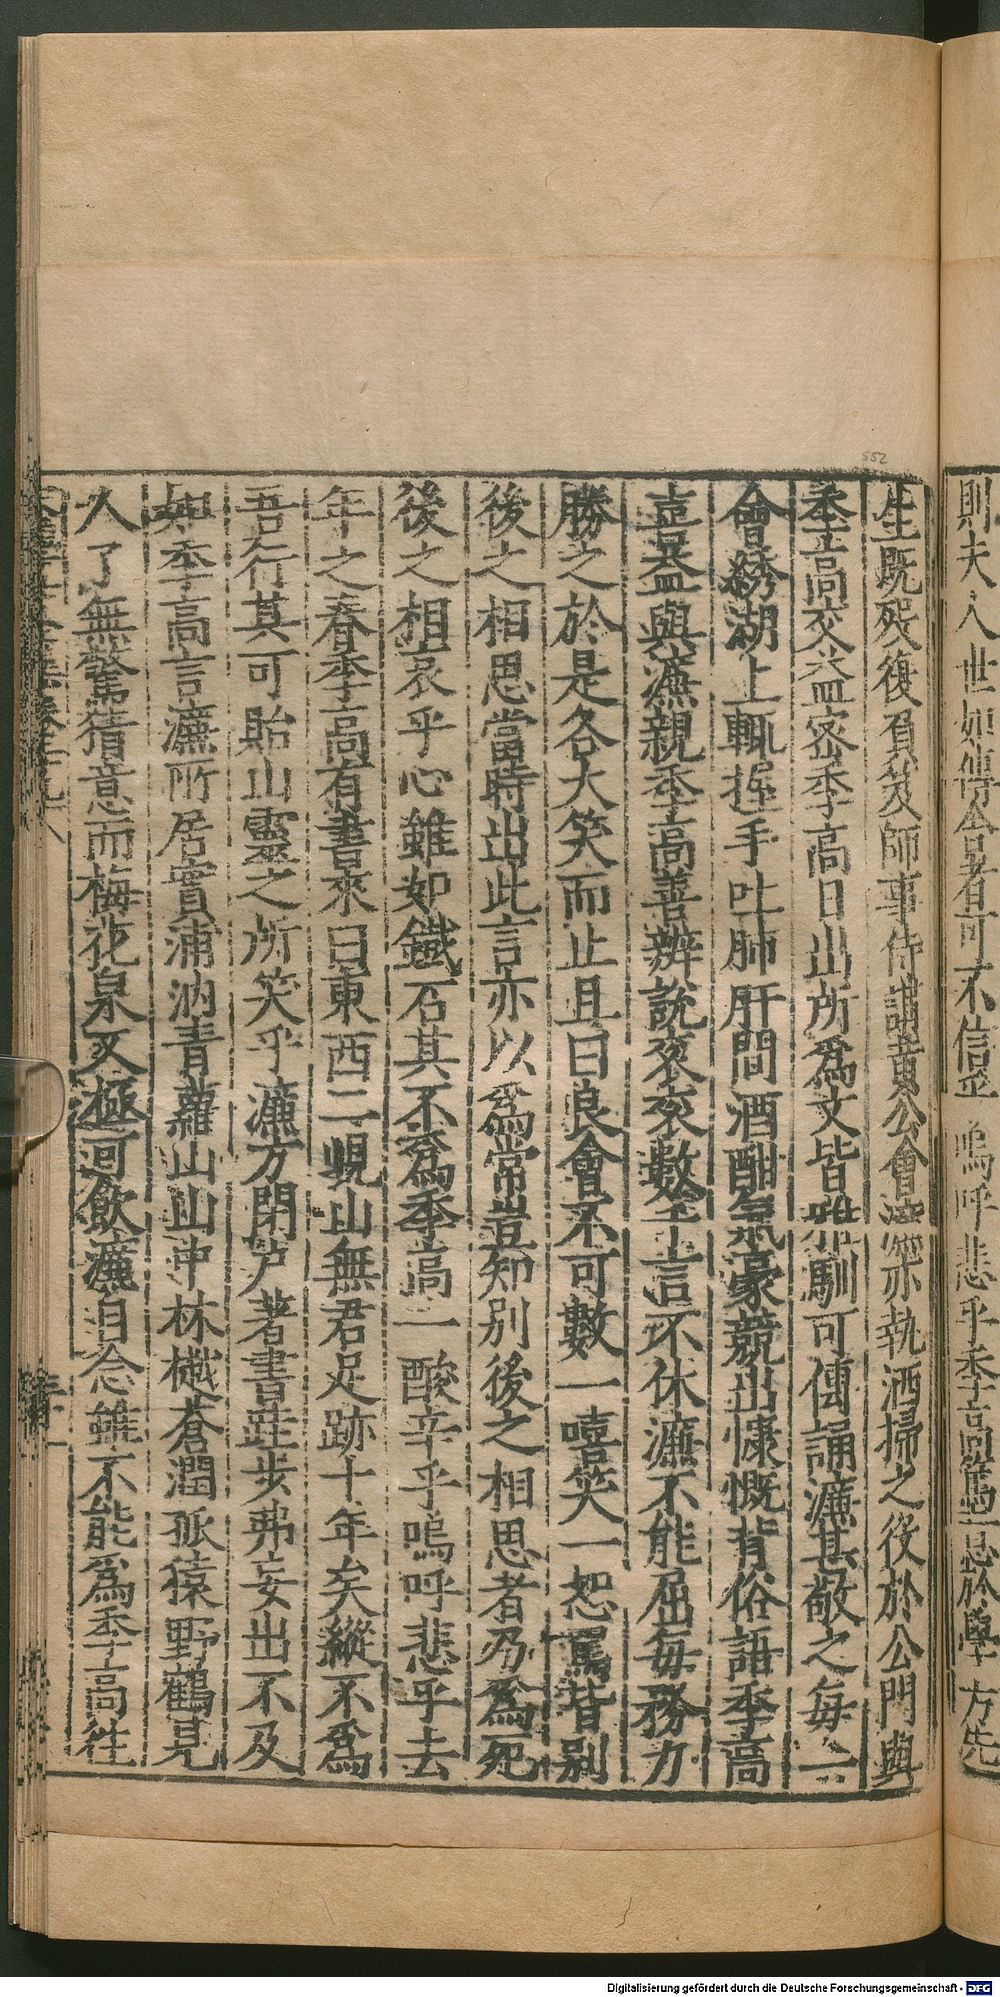 則夫人世如傳舍者可不信歟嗚呼悲乎季高篤志於學方先
生既歿復負笈師事侍講黃公會濂亦執洒掃之役於公門與
季高交益密季高日出所為文皆雅馴可傳誦濂甚敬之每一
會繡湖上輒握手吐肺肝間酒酣氣豪競出慷慨背俗語季高
喜益與濂親季高善辨說袞袞數千言不休濂不能屈每務力
勝之於是各大笑而止且曰良會不可數一嘻笑一怒罵皆別
後之相思當時出此言亦以為常豈知別後之相思者乃為死
後之相哀乎心雖如鐵石其不為季高一酸辛乎嗚呼悲乎去
年之春季高有書來曰東西二峴山無君足跡十年矣縱不為
吾行其可貽山靈之所笑乎濂方閉戶著書跬步弗妄出不及
如季高言濂所居實浦汭青蘿山山中林樾蒼潤孤猿野鶴見
人了無驚猜意而梅花泉又極可飲濂自念雖不能為季高往
552
Digitalisierung gefördert durch die Deutsche Forschungsgemeinschaft - DFG